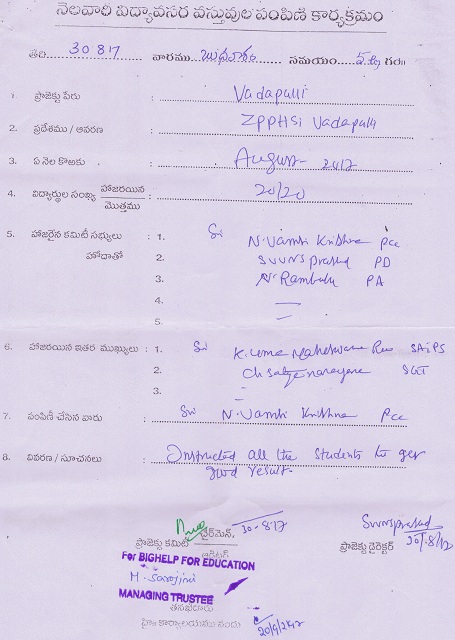 నెలవారీ విద్యావసర వస్తువుల పంపిణీ కార్యక్రమం
తేది.... 30 8 17 .... వారము.... బుధవారం .... సమయం....
1. ప్రాజెక్టు పేరు : Vadapalli
2. ప్రదేశము / ఆవరణ : ZPPHSI Vadapalli
3. ఏ నెల కొఱకు : August
4. విద్యార్థుల సంఖ్య హాజరయిన / మొత్తము : 20/20
5. హాజరైన కమిటీ సభ్యులు : 1. Sri N. Vamsi Krishna pcc
హోదాతో 2. SVVNS prasad PD
3. N. Rambabu PA
4. —
5.
6. హాజరయిన ఇతర ముఖ్యులు : 1. Sri K. Uma Maheswara Rao
2. Ch Satyanarayana SGT
3. –
7. పంపిణీ చేసిన వారు : Sri N. Vamsi Krishna Pcc
8. వివరణ / సూచనలు : Instructed all the students to get
good result.
30-8-17
ప్రాజెక్టు కమిటీ ఛైర్మెన్,
Svvnsprasad
ప్రాజెక్టు డైరెక్టర్
For BIGHELP FOR EDUCATION
M. Sarojini
MANAGING TRUSTEE